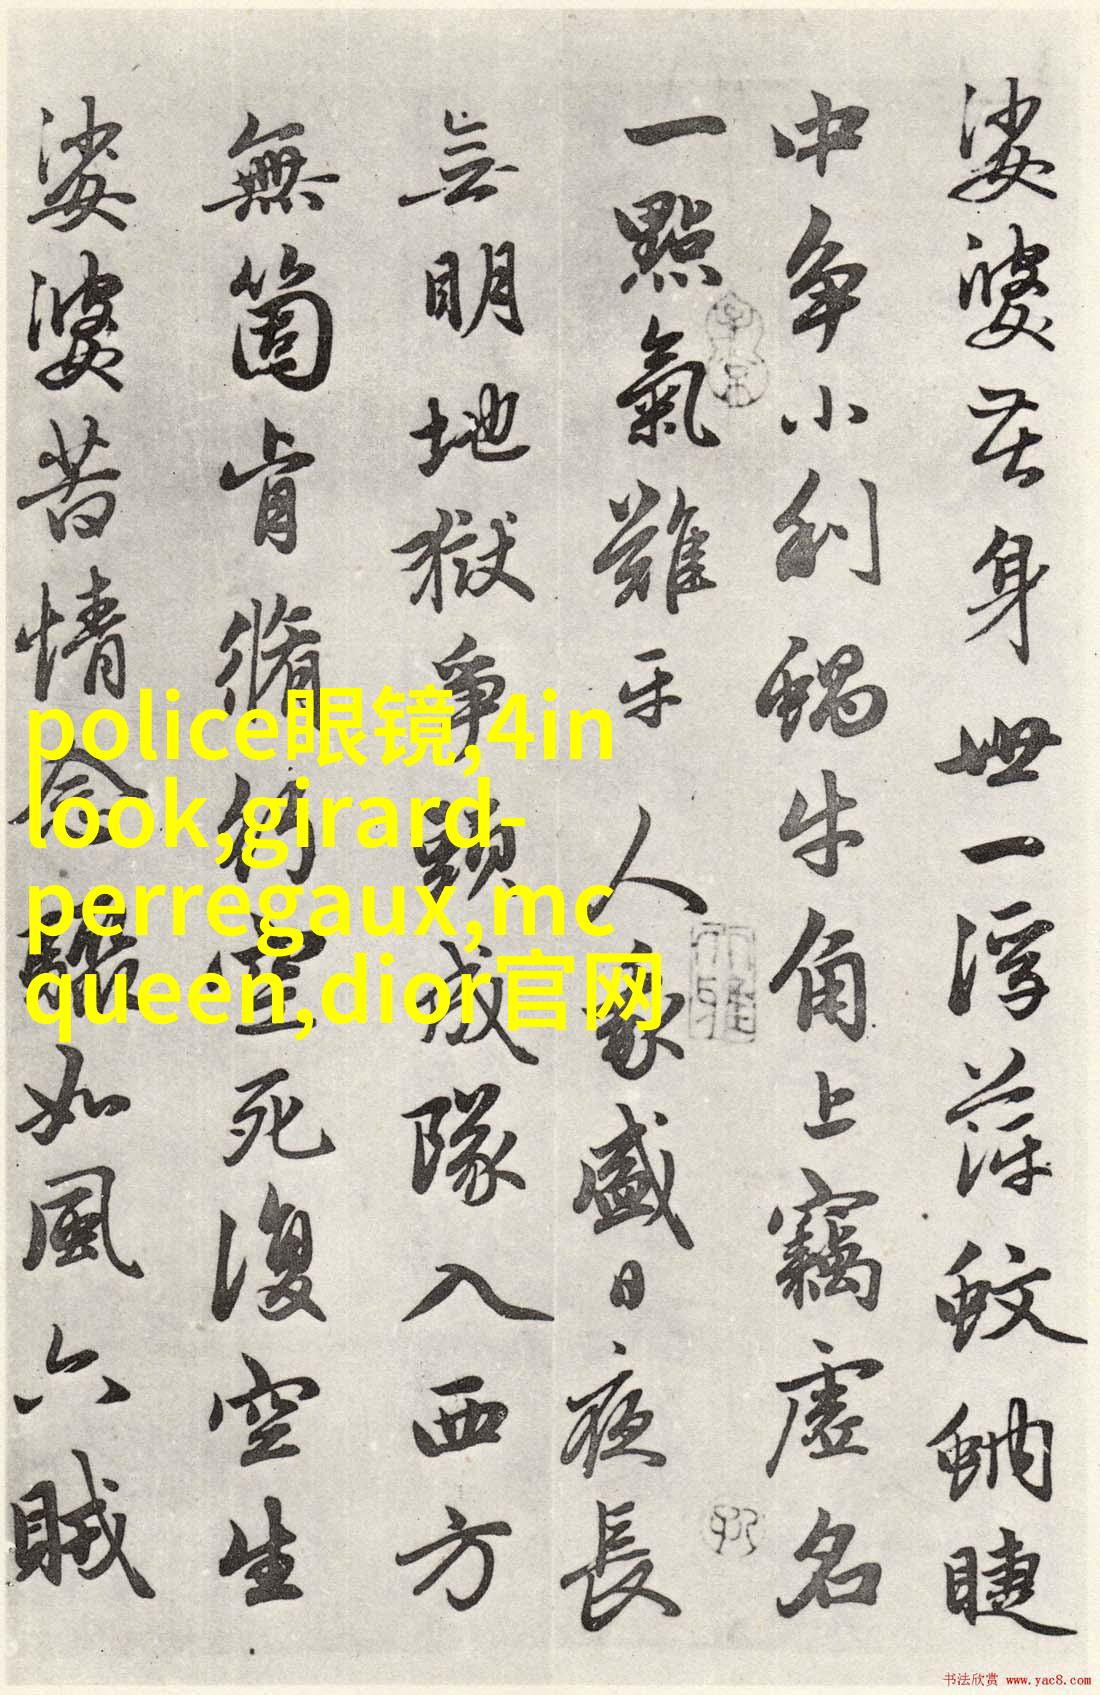 娑婆苦身世一浮萍蚊蚋睫
中争小利蝸牛角上竊虚名
一點氣難平人我盛日夜長
無明地獄争頭成隊入西方
無箇肯脩行空死復空生
娑婆苦情念驟如風六賊
police眼镜,4in
look,girard-
perregaux,mc
queen,dior官网
书法欣赏 www.yac8.com